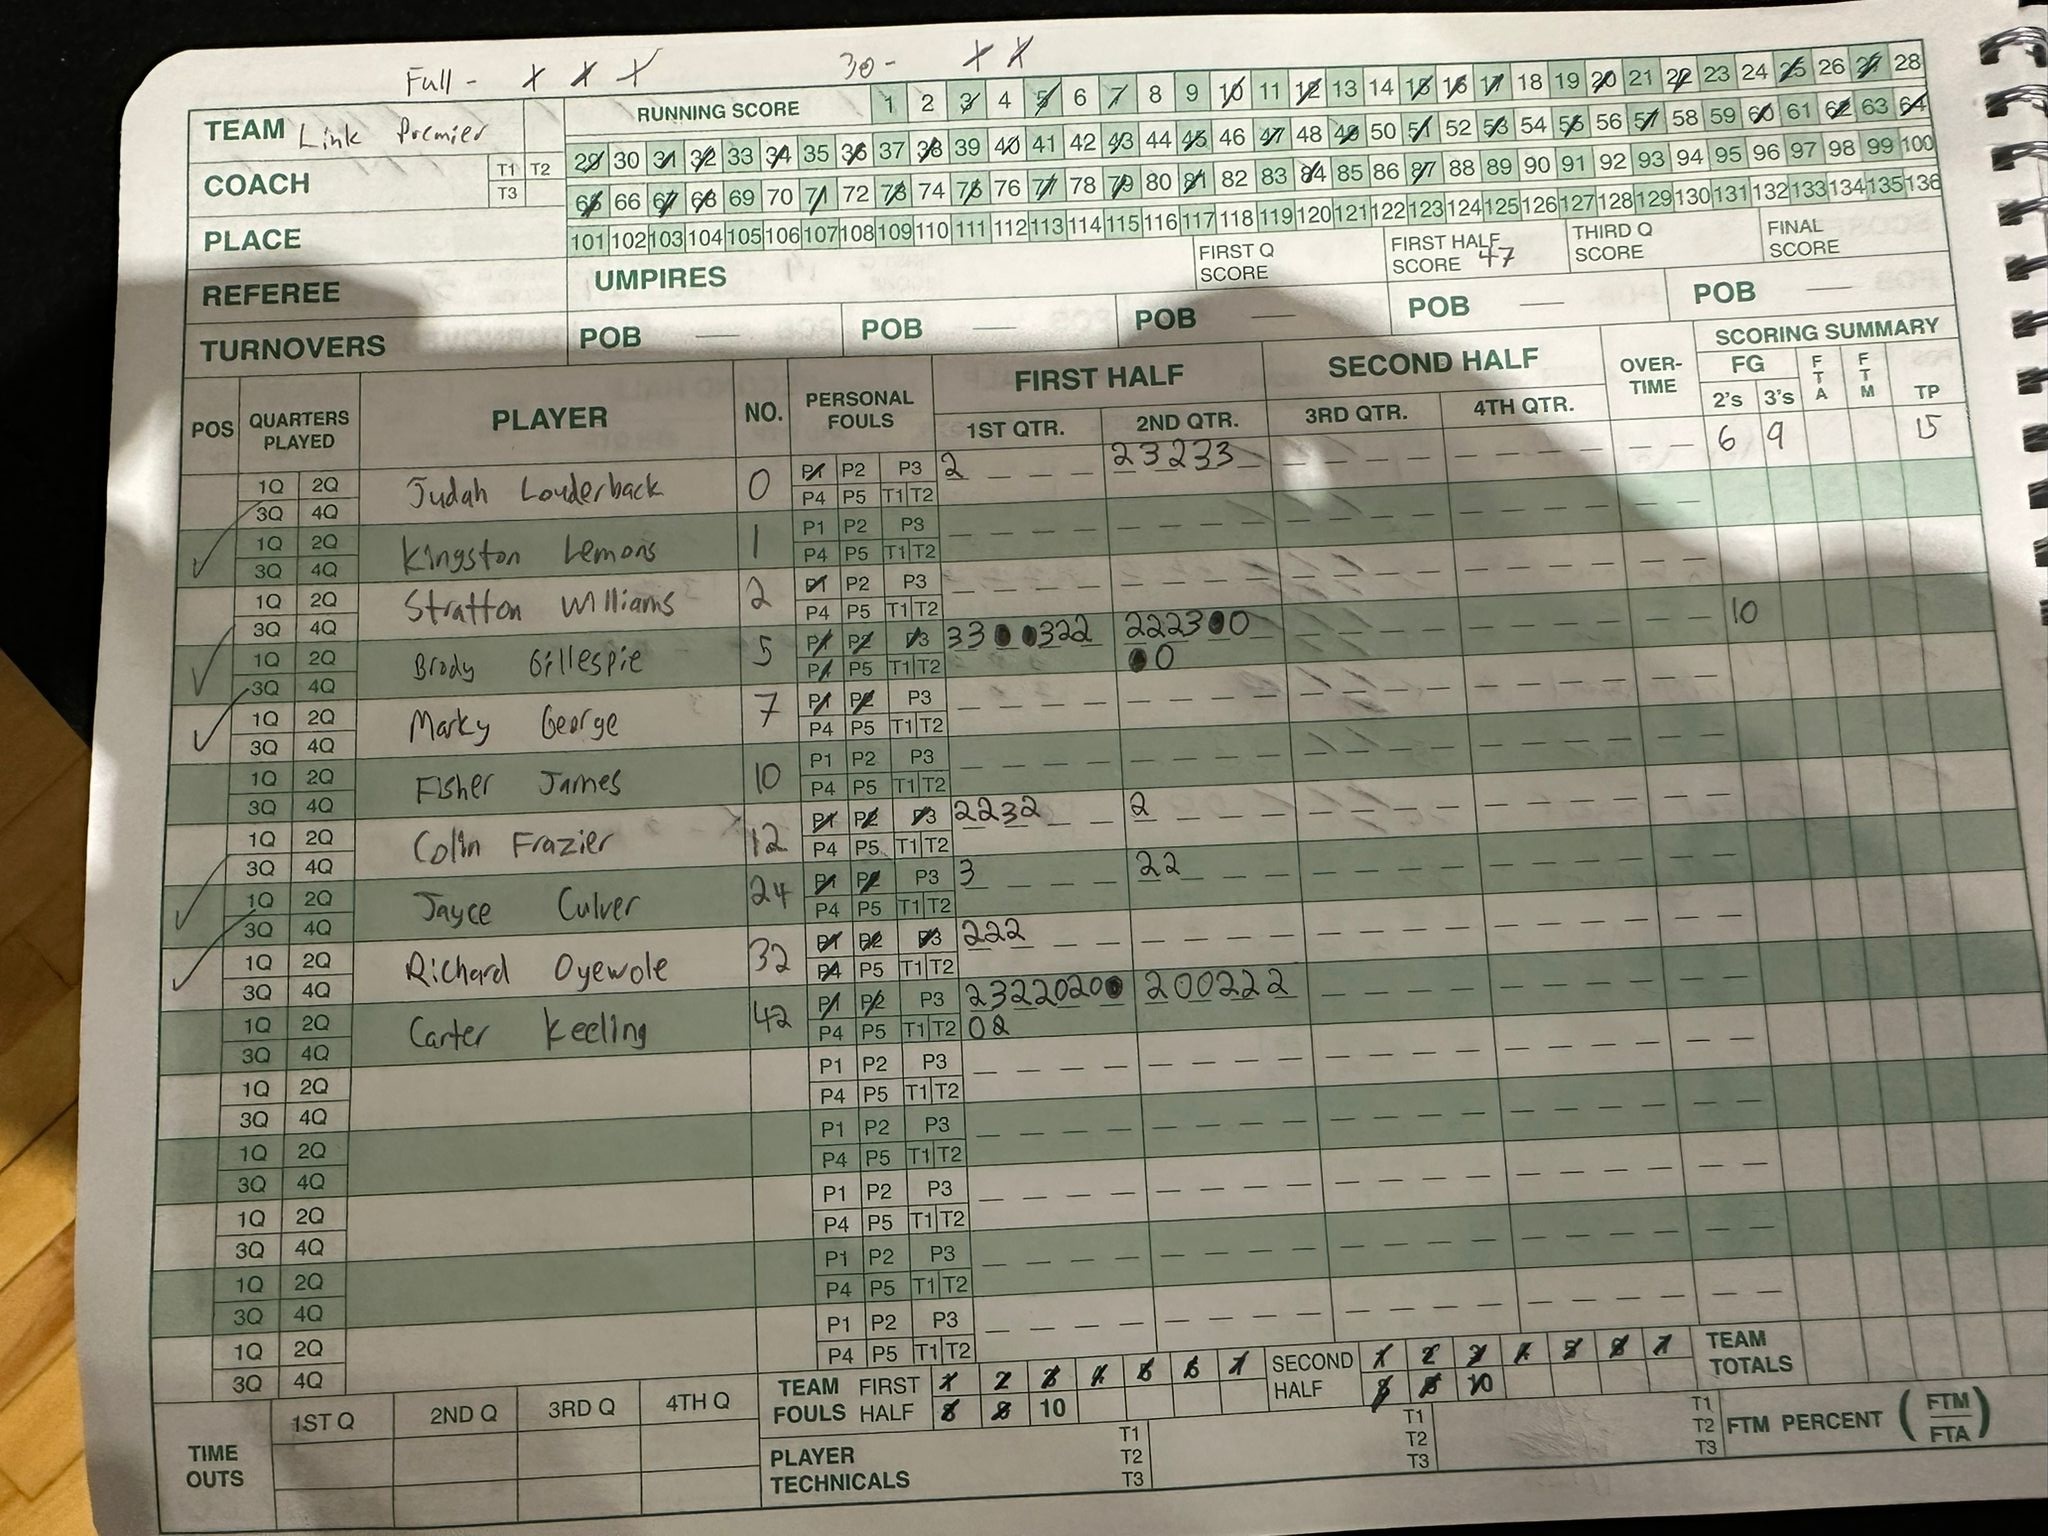 Full - X X X 30 - X X
TEAM Link Premier
RUNNING SCORE 1 2 3 4 5 6 7 8 9 10 11 12 13 14 15 16 17 18 19 20 21 22 23 24 25 26 27 28
29 30 31 32 33 34 35 36 37 38 39 40 41 42 43 44 45 46 47 48 49 50 51 52 53 54 55 56 57 58 59 60 61 62 63 64
COACH T1 T2 T3
65 66 67 68 69 70 71 72 73 74 75 76 77 78 79 80 81 82 83 84 85 86 87 88 89 90 91 92 93 94 95 96 97 98 99 100
PLACE
101 102 103 104 105 106 107 108 109 110 111 112 113 114 115 116 117 118 119 120 121 122 123 124 125 126 127 128 129 130 131 132 133 134 135 136
REFEREE UMPIRES FIRST Q SCORE FIRST HALF SCORE 47 THIRD Q SCORE FINAL SCORE
TURNOVERS POB — POB — POB — POB — POB —
POS QUARTERS PLAYED PLAYER NO. PERSONAL FOULS FIRST HALF SECOND HALF OVER-TIME SCORING SUMMARY
1ST QTR. 2ND QTR. 3RD QTR. 4TH QTR. FG 2's 3's FTA FTM TP
1Q 2Q 3Q 4Q Judah Louderback 0 P1 P2 P3 P4 P5 T1 T2 2 23233 6 9 15
1Q 2Q 3Q 4Q Kingston Lemons 1 P1 P2 P3 P4 P5 T1 T2
1Q 2Q 3Q 4Q Stratton Williams 2 P1 P2 P3 P4 P5 T1 T2
1Q 2Q 3Q 4Q Brody Gillespie 5 P1 P2 P3 P4 P5 T1 T2 3300322 222300 00 10
1Q 2Q 3Q 4Q Marky George 7 P1 P2 P3 P4 P5 T1 T2
1Q 2Q 3Q 4Q Fisher James 10 P1 P2 P3 P4 P5 T1 T2
1Q 2Q 3Q 4Q Colin Frazier 12 P1 P2 P3 P4 P5 T1 T2 2232 2
1Q 2Q 3Q 4Q Jayce Culver 24 P1 P2 P3 P4 P5 T1 T2 3 22
1Q 2Q 3Q 4Q Richard Oyewole 32 P1 P2 P3 P4 P5 T1 T2 222
1Q 2Q 3Q 4Q Carter Keeling 42 P1 P2 P3 P4 P5 T1 T2 23220200 200222
1Q 2Q 3Q 4Q P1 P2 P3 P4 P5 T1 T2
1Q 2Q 3Q 4Q P1 P2 P3 P4 P5 T1 T2
1Q 2Q 3Q 4Q P1 P2 P3 P4 P5 T1 T2
1Q 2Q 3Q 4Q P1 P2 P3 P4 P5 T1 T2
1Q 2Q 3Q 4Q P1 P2 P3 P4 P5 T1 T2
TEAM FOULS FIRST HALF 1 2 3 4 5 6 7 8 9 10 SECOND HALF 1 2 3 4 5 6 7 8 9 10 TEAM TOTALS
TIME OUTS 1ST Q 2ND Q 3RD Q 4TH Q
PLAYER TECHNICALS T1 T2 T3 T1 T2 T3 T1 T2 T3 FTM PERCENT (FTM/FTA)